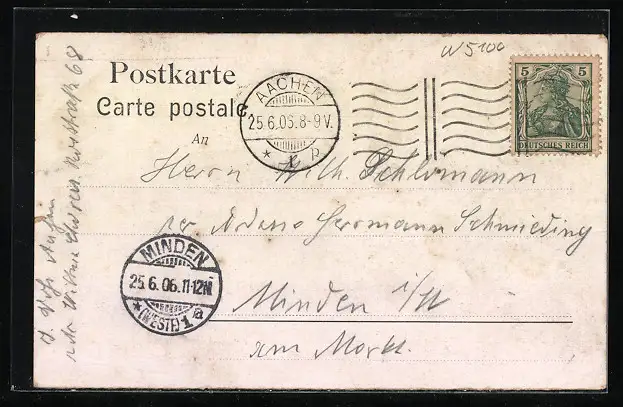 W5100
Postkarte
Carte postale.
An
AACHEN
25.6.06.8-9V.
* 1 p
5 5
DEUTSCHES REICH
Herrn Wilh. Schlomann
per Adresse Herrmann Schmieding
MINDEN
25.6.06.11-12N.
* (WESTF) 1 a
Minden i/W
am Markt.